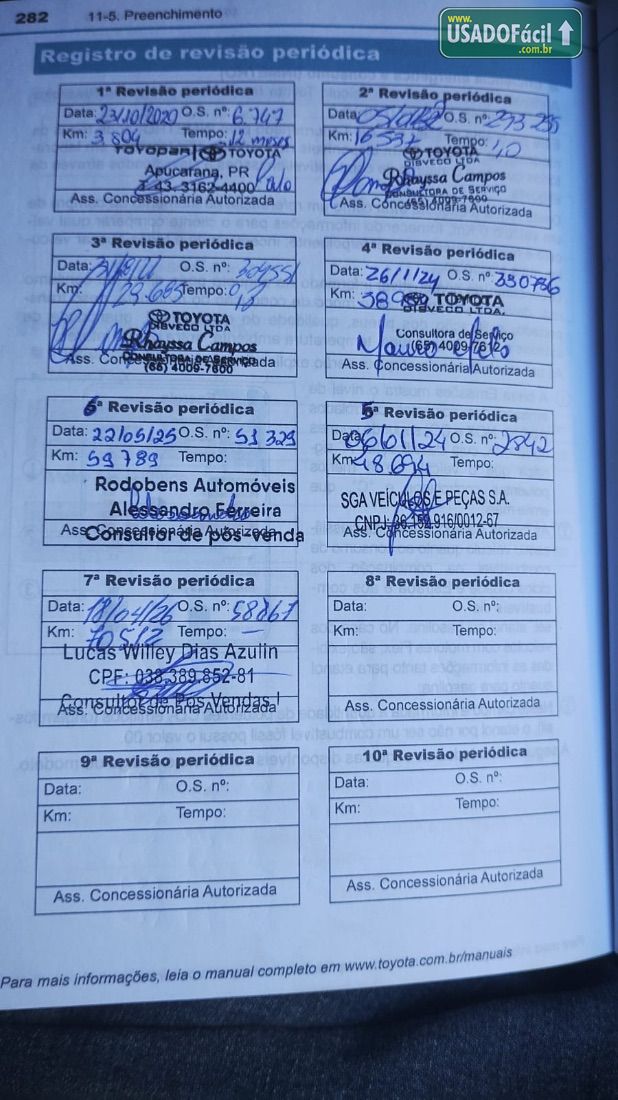 282 11-5. Preenchimento
www.
USADOFácil
.com.br
Registro de revisão periódica
1ª Revisão periódica
Data: 23/10/2020 O.S. nº: 6.747
Km: 3 804 Tempo: 12 meses
Toyopar TOYOTA
Apucarana, PR
43. 3162-4400
Ass. Concessionária Autorizada
2ª Revisão periódica
Data: O.S. nº:
Km: 16 537 Tempo: 1,0
TOYOTA
DISVECO LTDA
Rhayssa Campos
CONSULTORA DE SERVIÇO
(65) 4009-7600
Ass. Concessionária Autorizada
3ª Revisão periódica
Data: O.S. nº: 309551
Km: 29.665 Tempo:
TOYOTA
DISVECO LTDA
Rhayssa Campos
CONSULTORA DE SERVIÇO
(65) 4009-7600
Ass. Concessionária Autorizada
4ª Revisão periódica
Data: O.S. nº: 330736
Km: Tempo:
TOYOTA
DISVECO LTDA.
Consultora de Serviço
(65) 4009-7612
Ass. Concessionária Autorizada
6ª Revisão periódica
Data: 22/05/25 O.S. nº: 51 329
Km: 59 789 Tempo:
Rodobens Automóveis
Alessandro Ferreira
Ass. Concessionária Autorizada
Consultor de pós-venda
5ª Revisão periódica
Data: 06/01/24 O.S. nº: 2842
Km: 48.694 Tempo:
SGA VEÍCULOS E PEÇAS S.A.
CNPJ: 36.182.916/0012-67
Ass. Concessionária Autorizada
7ª Revisão periódica
Data: 18/04/26 O.S. nº: 58867
Km: 70512 Tempo: —
Lucas Willey Dias Azulin
CPF: 038.389.852-81
Consultor de Pós Vendas I
Ass. Concessionária Autorizada
8ª Revisão periódica
Data: O.S. nº:
Km: Tempo:
Ass. Concessionária Autorizada
9ª Revisão periódica
Data: O.S. nº:
Km: Tempo:
Ass. Concessionária Autorizada
10ª Revisão periódica
Data: O.S. nº:
Km: Tempo:
Ass. Concessionária Autorizada
Para mais informações, leia o manual completo em www.toyota.com.br/manuais